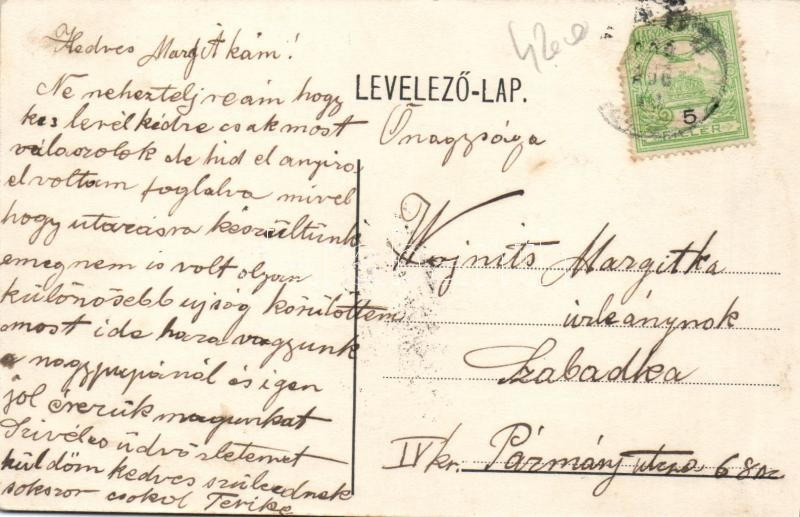 Kedves Margitkám!
Ne neheztelj reám hogy
kis levélkédre csak most
válaszolok de hid el anyira
el voltam foglalva mivel
hogy utazásra készültünk
emegnem is volt olyan
különösebb ujság körülöttem
most ide haza vagyunk
a nagypapánál és igen
jol érezük magunkat
Szivéles üdvözletemet
küldöm kedves szüleidnek
sokszor csokol Terike
LEVELEZŐ-LAP.
Őnagysága
Vojnits Margitka
úrleánynok
Szabadka
IV kr. Pázmány utcza 68 sz
5